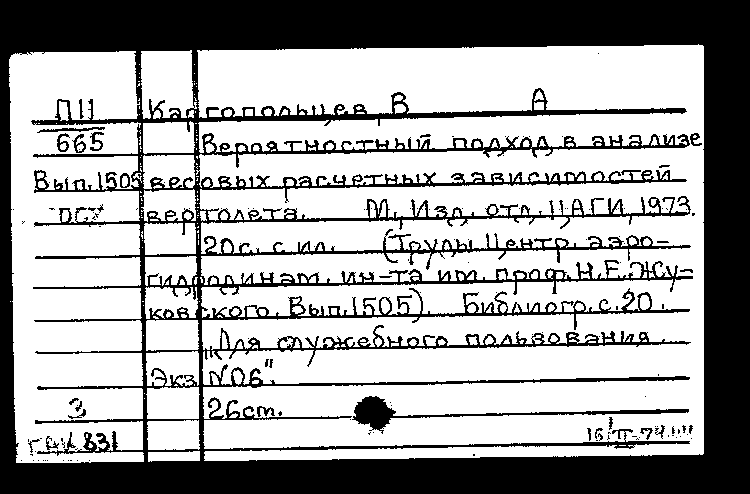 П11 Каргопольцев, В А
665 Вероятностный подход в анализе
Вып.1505 весовых расчетных зависимостей
вертолета. М., Изд. отд. ЦАГИ, 1973.
20с. с ил. (Труды Центр. аэро-
гидродинам. ин-та им. проф. Н.Е.Жу-
ковского. Вып.1505). Библиогр. с.20.
"Для служебного пользования.
Экз №06".
3 26см.
831 16/II-74